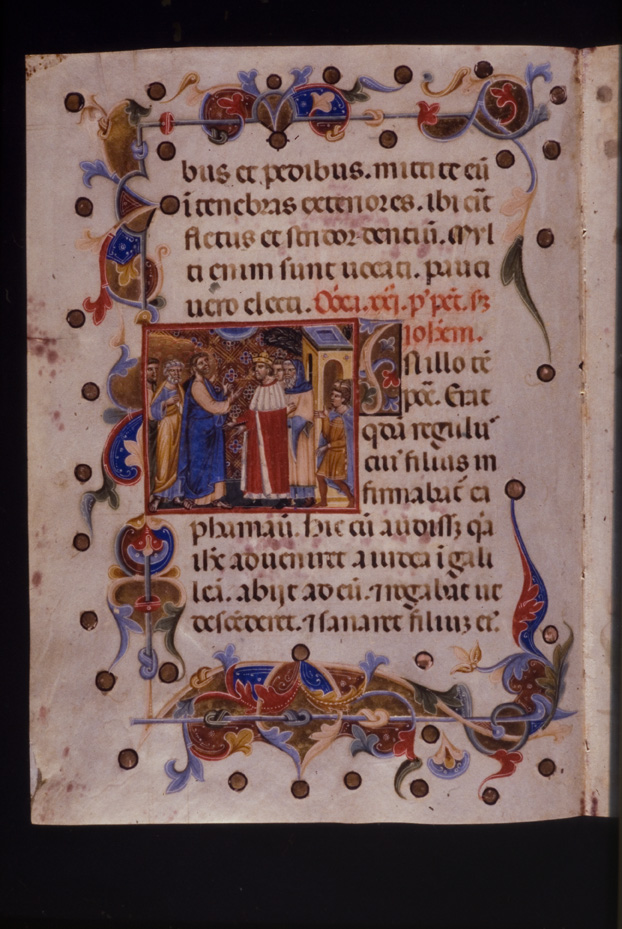 bus et pedibus. mittite eū
ī tenebras exteriores. ibi eīt
fletus et stridor dentiū. Ml
ti enim sunt uocati. pauci
uero electi. Dōica. xxi. p' pēt. sz
iohēm.
N illo tē
poē. Erat
qdā regulu'
cui' filius in
firmabat̄ ca
pharnaū. Hic cū audissz q̄a
ih̄c adueniret a iudea ī gali
leā. abijt ad eū. ⁊ rogabat ut
descēderet. ⁊ sanaret filiuz ei'.